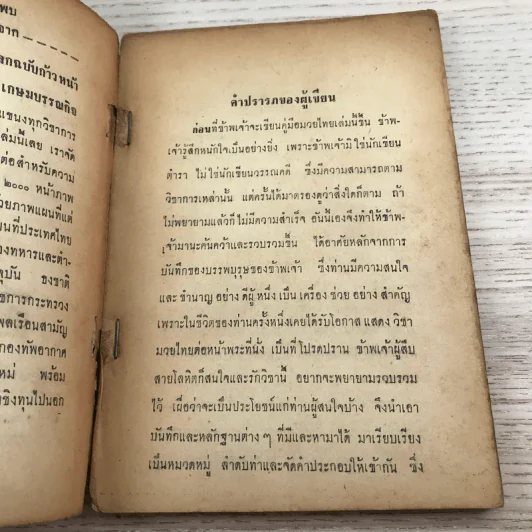 พบ
จาก -----
กฉบับก้าวหน้า
เกษมบรรณกิจ
แขนงทุกวิชาการ
ล่มนี้เลย เราจัด
ต่อสำหรับความ
๒๐๐๐ หน้าภาพ
วยภาพแผนที่แต่
นที่ประเทศไทย
องทหารและตำ-
จุบัน ธงชาติ
ชการกระทรวง
พลเรือนสามัญ
กองทัพอากาศ
หม่ พร้อม
ชิงทุนไปนอก
คำปรารภของผู้เขียน
ก่อนที่ข้าพเจ้าจะเขียนคู่มือมวยไทยเล่มนี้ขึ้น ข้าพ-
เจ้ารู้สึกหนักใจเป็นอย่างยิ่ง เพราะข้าพเจ้ามิใช่นักเขียน
ตำรา ไม่ใช่นักเขียนวรรณคดี ซึ่งมีความสามารถตาม
วิชาการเหล่านั้น แต่ครั้นได้มาตรองดูว่าสิ่งใดก็ตาม ถ้า
ไม่พยายามแล้วก็ไม่มีความสำเร็จ อันนี้เองจึงทำให้ข้าพ-
เจ้ามานะค้นคว้าและรวบรวมขึ้น ได้อาศัยหลักจากการ
บันทึกของบรรพบุรุษของข้าพเจ้า ซึ่งท่านมีความสนใจ
และ ชำนาญ อย่าง ดีผู้ หนึ่ง เป็น เครื่อง ช่วย อย่าง สำคัญ
เพราะในชีวิตของท่านครั้งหนึ่งเคยได้รับโอกาส แสดง วิชา
มวยไทยต่อหน้าพระที่นั่ง เป็นที่โปรดปราน ข้าพเจ้าผู้สืบ
สายโลหิตก็สนใจและรักวิชานี้ อยากจะพยายามรวบรวม
ไว้ เผื่อว่าจะเป็นประโยชน์แก่ท่านผู้สนใจบ้าง จึงนำเอา
บันทึกและหลักฐานต่าง ๆ ที่มีและหามาได้ มาเรียบเรียง
เป็นหมวดหมู่ ลำดับท่าและจัดคำประกอบให้เข้ากัน ซึ่ง